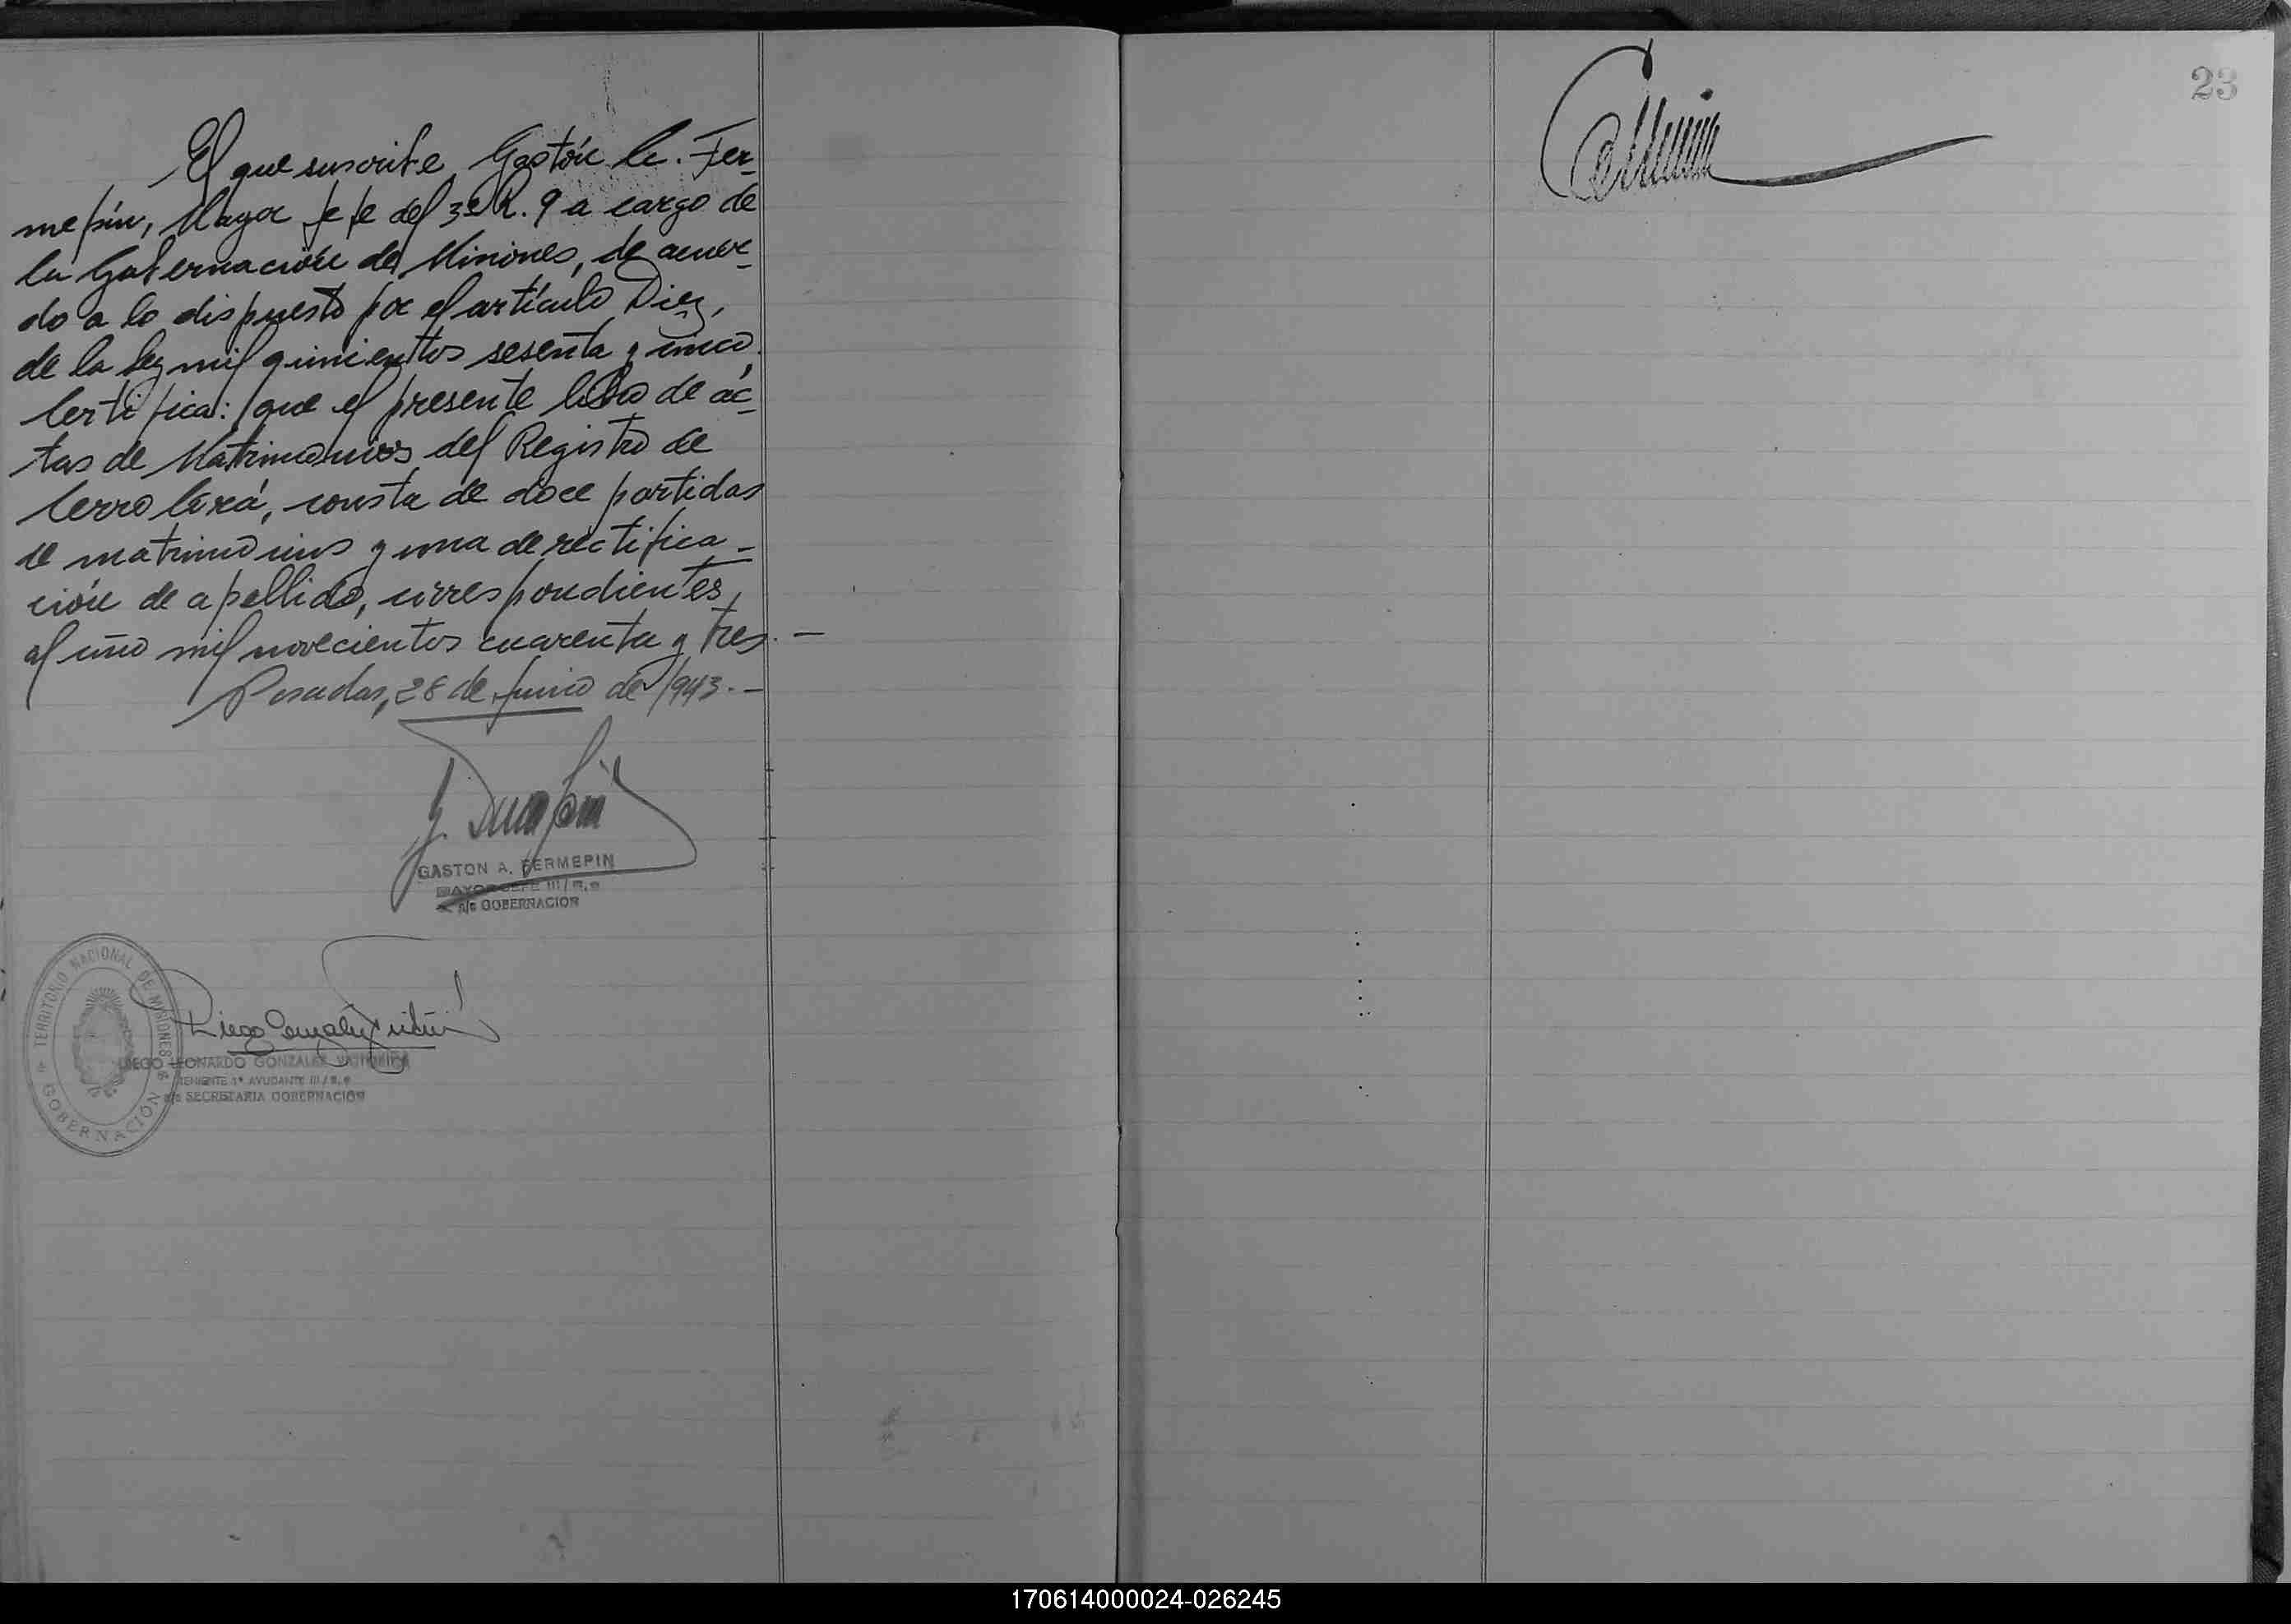 El que suscribe Gastón A. Fer-
mepín, Mayor Jefe del 3º R. 9 a cargo de
la Gobernación de Misiones, de acuer-
do a lo dispuesto por el artículo Diez,
de la ley mil quinientos sesenta y cinco,
Certifica: que el presente libro de ac-
tas de Matrimonios del Registro de
Cerro Corá, consta de doce partidas
de matrimonios y una de rectifica-
ción de apellido, correspondientes
al año mil novecientos cuarenta y tres. —
Posadas, 28 de Junio de 1943. —
GASTON A. FERMEPIN
MAYOR JEFE III/R.9
a/c GOBERNACION
TERRITORIO NACIONAL DE MISIONES
GOBERNACIÓN
DIEGO LEONARDO GONZALEZ
TENIENTE 1º AYUDANTE III/R.9
a/c SECRETARIA GOBERNACIÓN
23
170614000024-026245